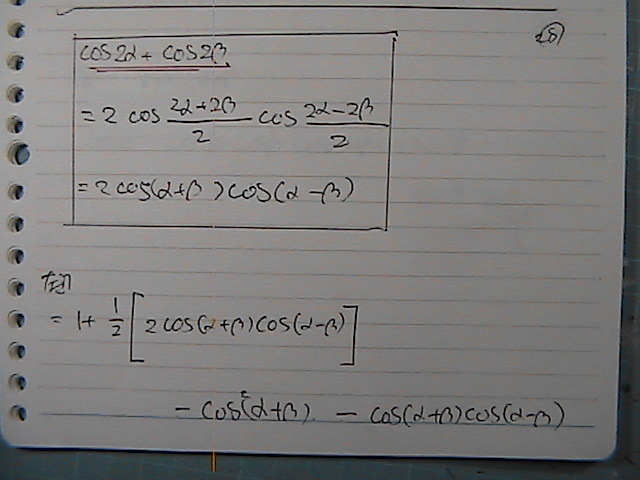 cos2α + cos2β
= 2 cos (2α+2β)/2 cos (2α-2β)/2
= 2cos(α+β)cos(α-β)
= 1 + 1/2 [2cos(α+β)cos(α-β)]
- cos²(α+β) - cos(α+β)cos(α-β)